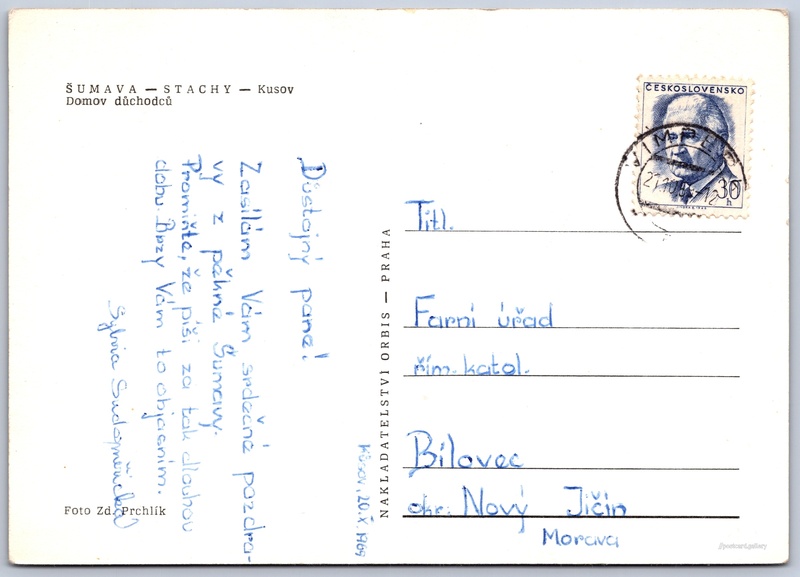 ŠUMAVA — STACHY — Kusov
Domov důchodců
Důstojný pane!
Zasílám Vám srdečné pozdra-
vy z pěkné Šumavy.
Promiňte, že píši za tak dlouhou
dobu. Brzy Vám to objasním.
Sylvia
Foto Zd. Prchlík
Kůsov, 20. X. 1969
NAKLADATELSTVÍ ORBIS — PRAHA
ČESKOSLOVENSKO
30
h
VIMPERK
Titl.
Farní úřad
řím. katol.
Bílovec
okr. Nový Jičín
Morava